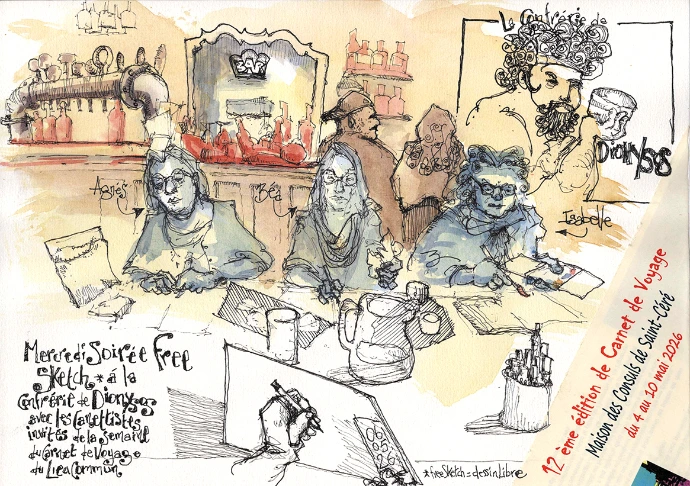 La Confrérie de
BAR
Dionysos
Agnès
Béa
Isabelle
Mercredi Soirée free
Sketch * à la
Confrérie de Dionysos
avec les carnettistes
invités de la semaine
du Carnet de Voyage
du Lieu Commun
06
05
26
*freeSketch = dessin libre
12 ème édition de Carnet de Voyage
Maison des Consuls de Saint-Céré
du 4 au 10 mai 2026